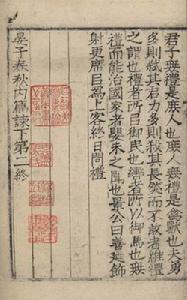 君子無禮是庶人也庶人無禮是禽獸也夫勇
多則弑其君力多則殺其長然而不敢者維禮
之謂也禮者所以御民也轡者所以御馬也無
禮而能治國家者嬰未之聞也景公曰善迺飾
射更席以為上客終日問禮
晏子春秋內篇諫下第二終